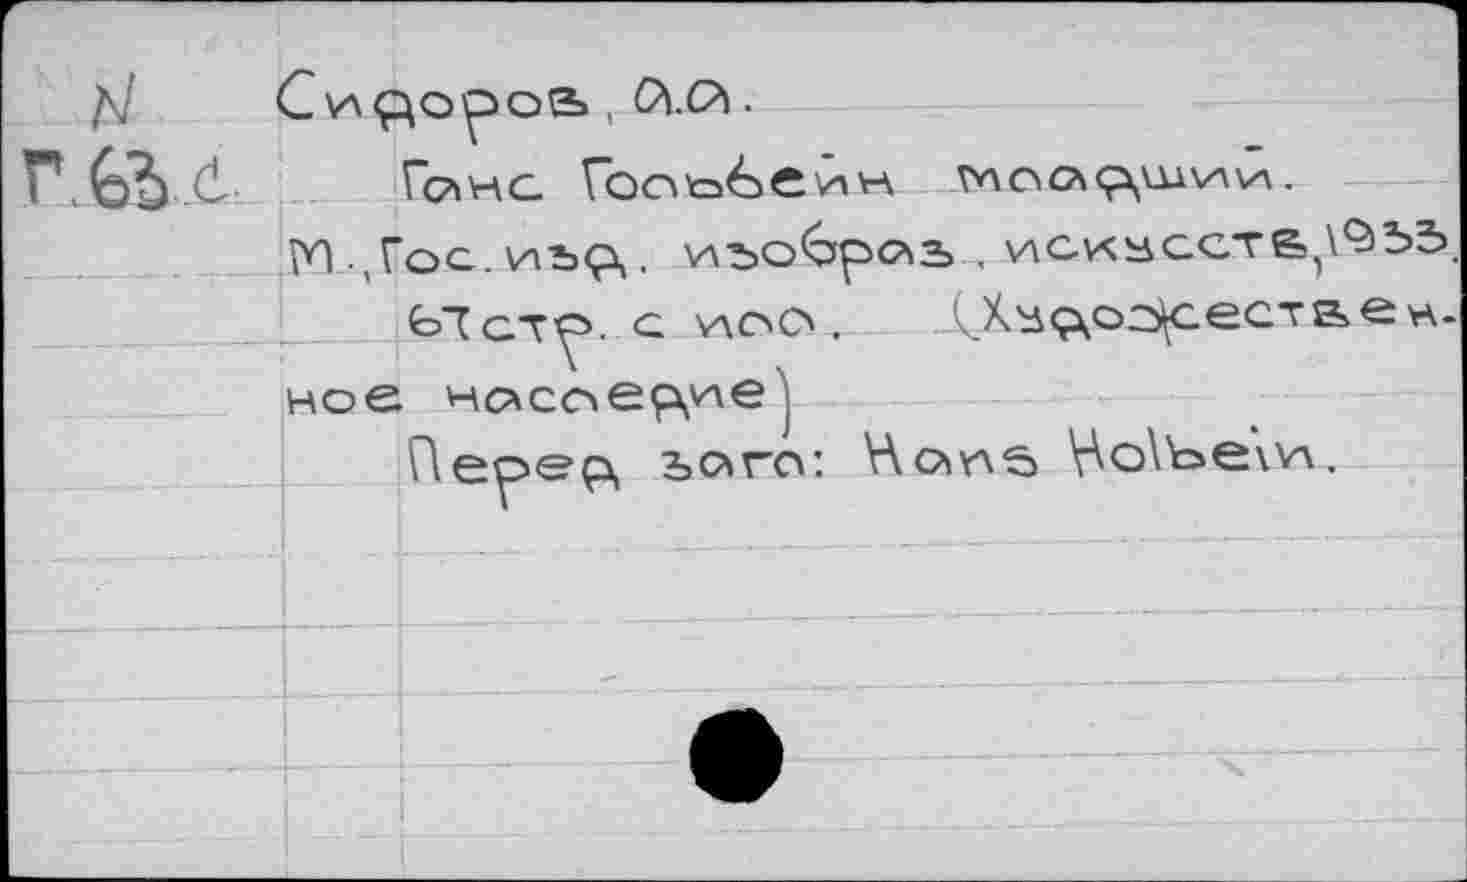 N Сидоров, А.А.
Г.63.d. Ганс Гольбейн младший.
М., Гос. изд. изобраз. искусств, 1933.
67 стр. с илл. (Художествен-
ное наследие)
Перед загл: Hans Holbein.